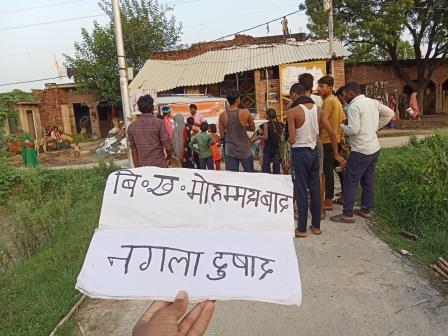 बि॰ख॰ मोहम्मदाबाद
नगला दुषाद